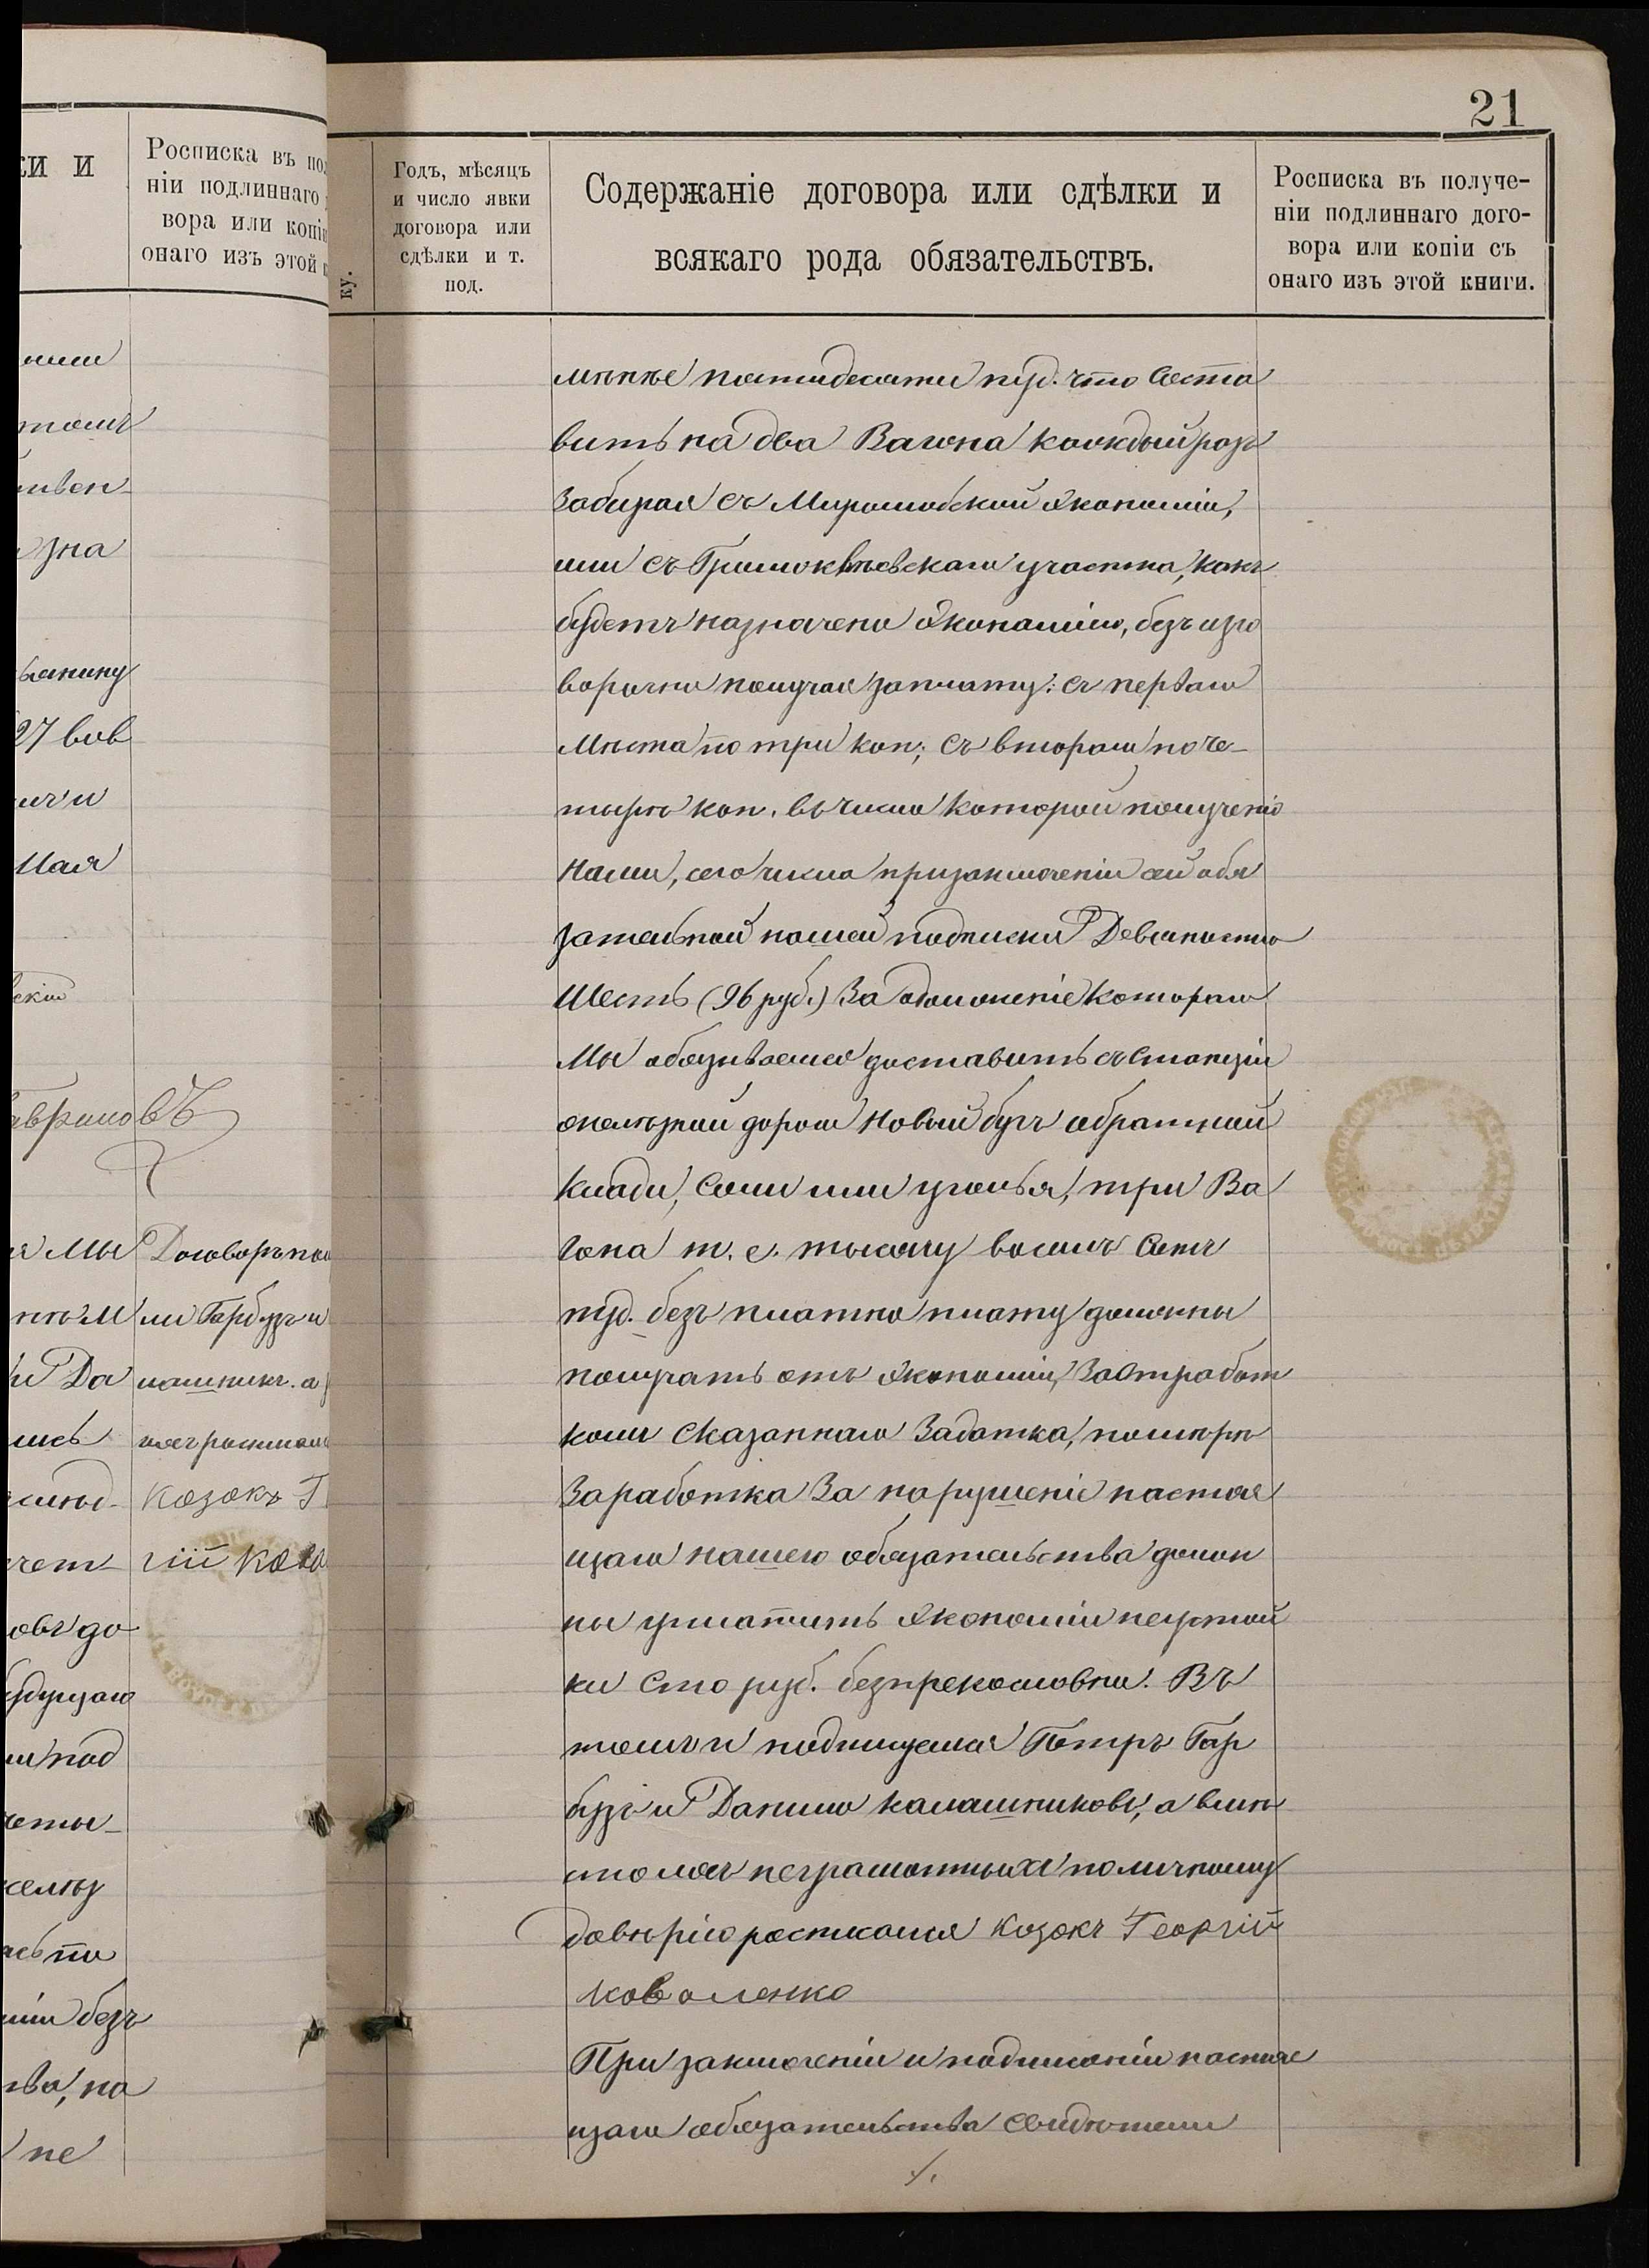 21
ки и
Росписка въ по
ніи подлиннаго
вора или копіи
онаго изъ этой
ку.
Годъ, мѣсяцъ
и число явки
договора или
сдѣлки и т.
под.
Содержаніе договора или сдѣлки и
всякаго рода обязательствъ.
Росписка въ получе-
ніи подлиннаго дого-
вора или копіи съ
онаго изъ этой книги.
зна
27 вов
Мая
авриловъ
Мы
Договоръ
ли Гарбузъ и
Да
Козокъ Г
гій Кова
под
безъ
на
не
мѣнѣе пятидесяти пуд. что соста
витъ на два Вагона каждый разъ
забирая съ экономіи,
или съ участка, какъ
будетъ назначено экономіею, безъ изго
ворачно получая заплату: съ перваго
мѣста по три коп; съ второго по че-
тыре коп. въ число которой получено
нами, сего числа при заключеніи сей обя
зательной нашей подписки Девяносто
Шесть (96 руб.) За одолженіе котораго
Мы обязываемся доставить съ станціи
желѣзной дороги Новый бугъ обратной
клади, соли или уголья, три Ва
гона т. е. тысячу восемь сотъ
пуд. безъ платно плату должны
получать отъ экономіи, за отработ
комъ сказаннаго Задатка, помѣрѣ
Заработка За нарушеніе настоя
щаго нашего обязательства долж
ны уплатить экономіи неустой
ки сто руб. безпрекословно. Въ
томъ и подпишемся Петръ Гар
бузъ и Данило Калашниковъ, а вмѣ
сто ихъ неграмотныхъ по личному
довѣрію росписался Козокъ Георгій
Коваленко
При заключеніи и подписаніи настоя
щаго обязательства свидѣтели